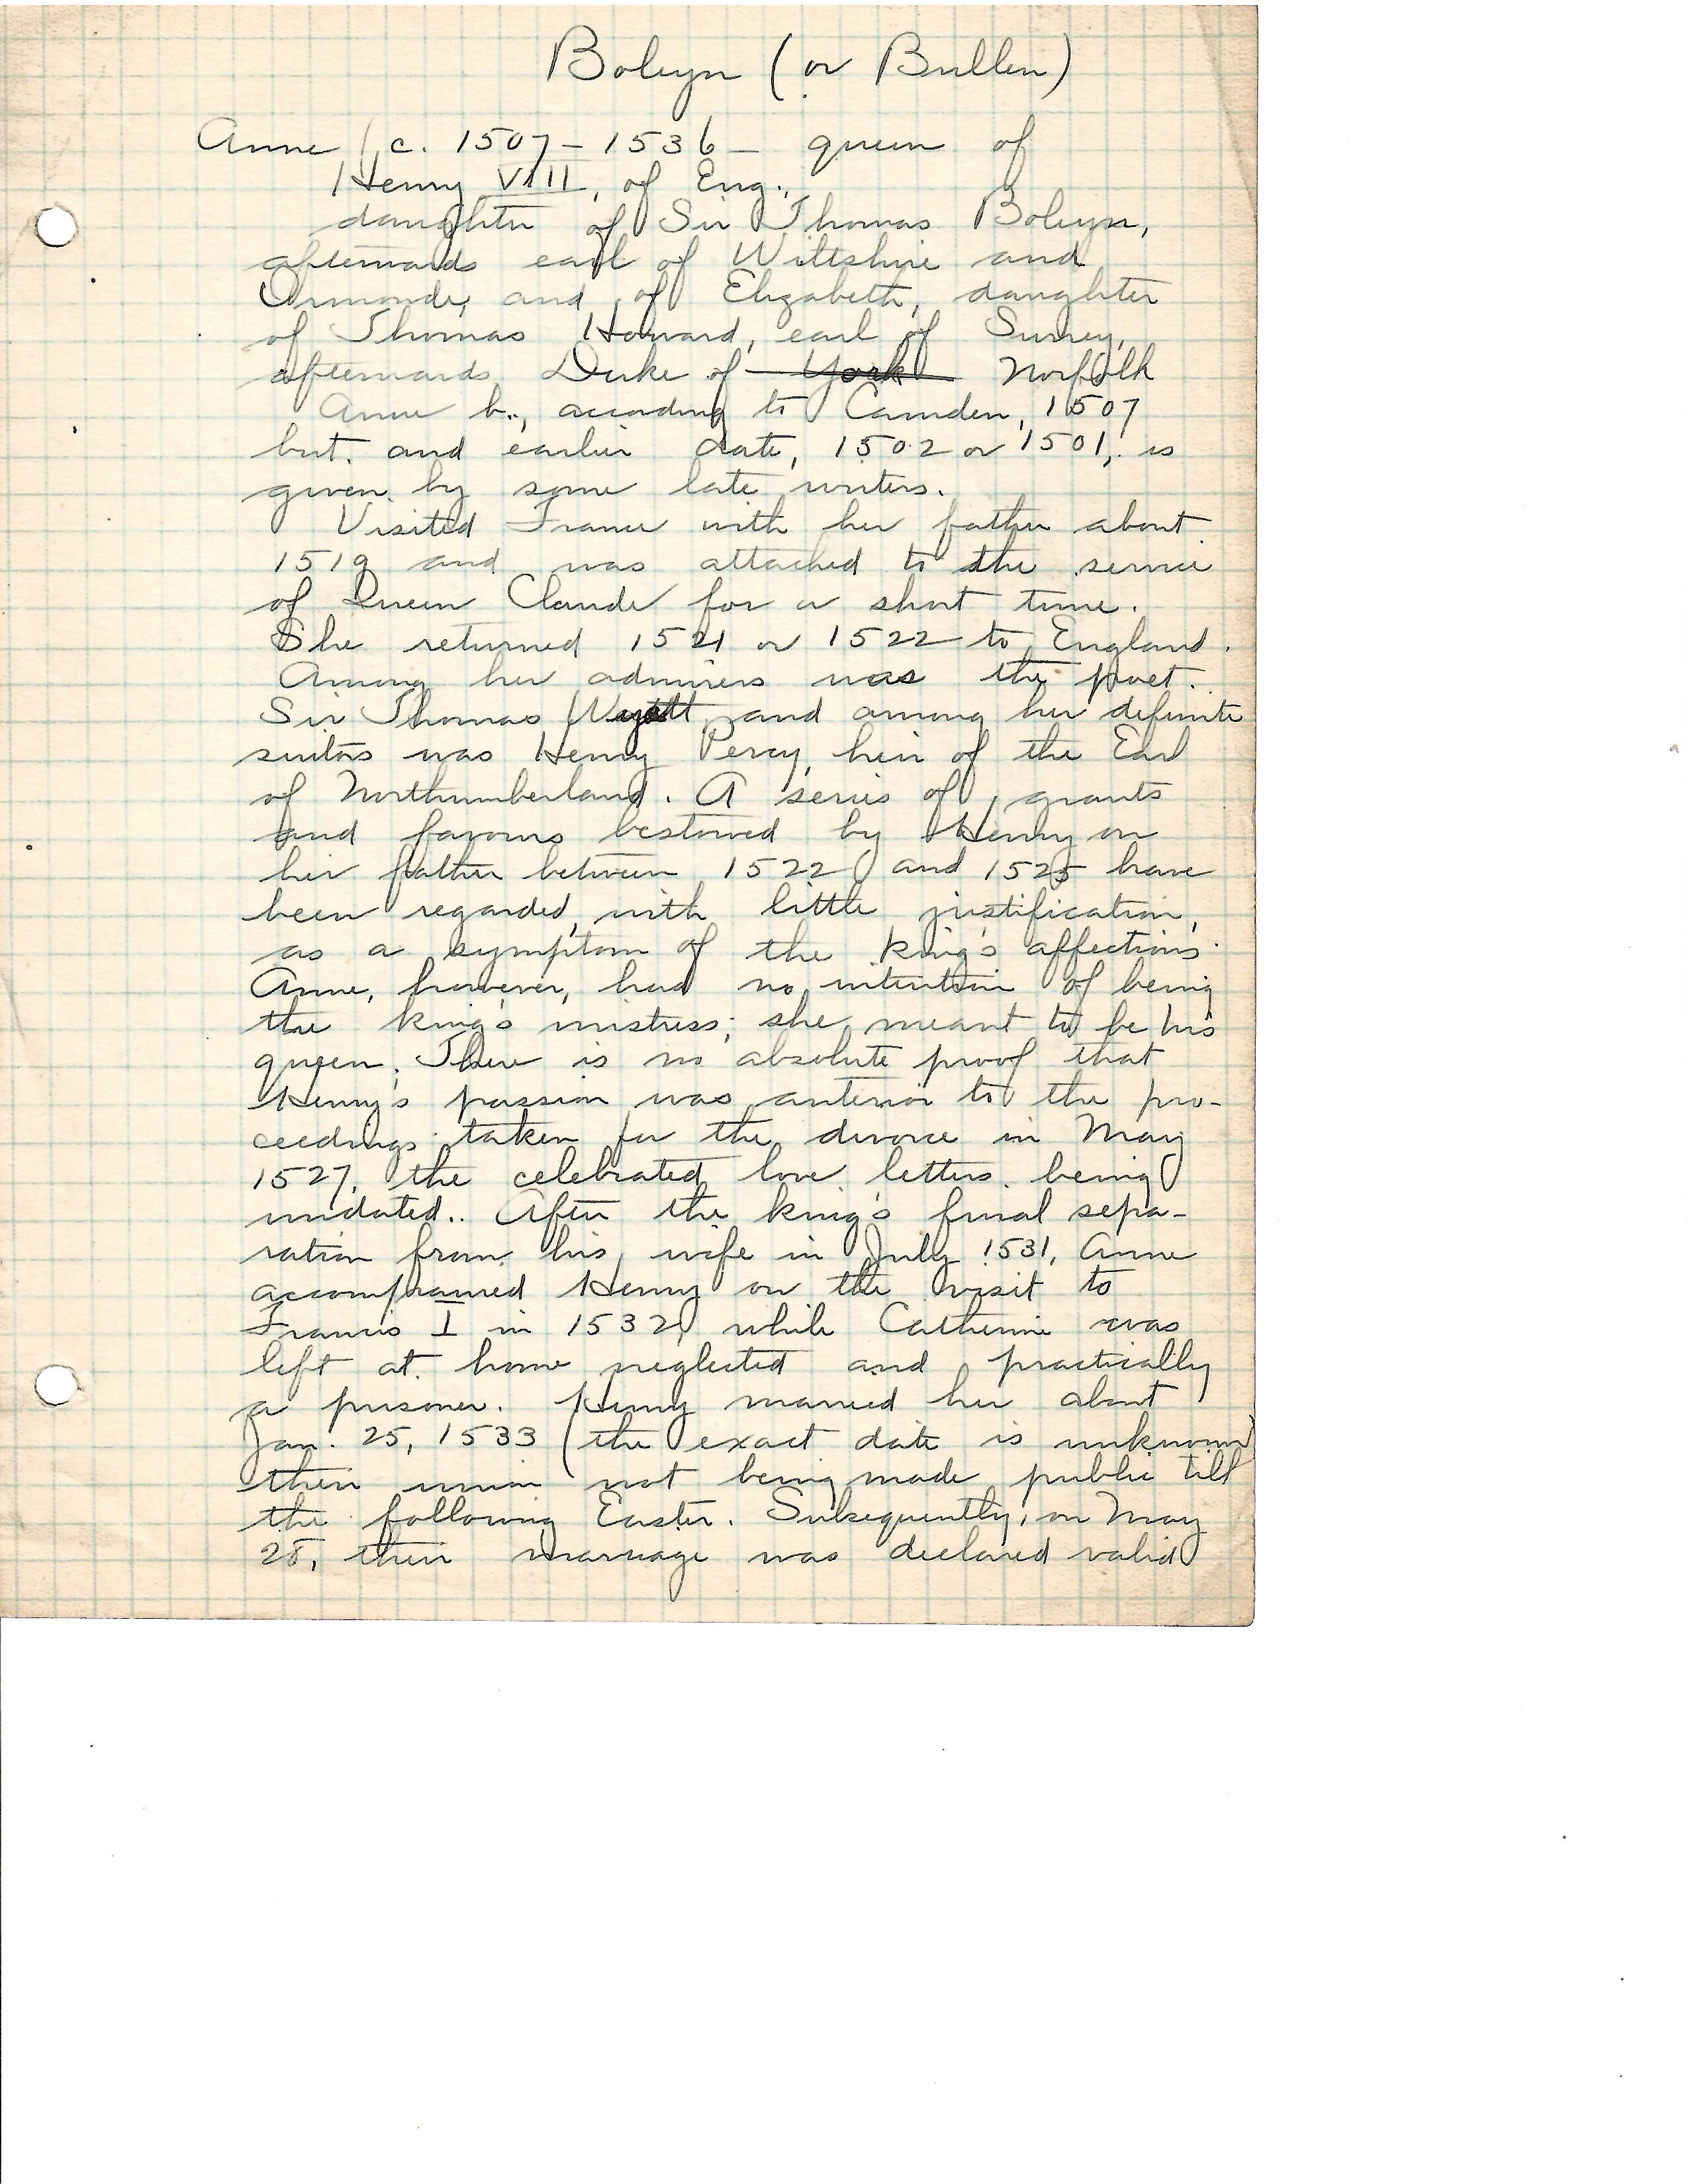 Boleyn (or Bullen)
Anne (c. 1507 – 1536 – queen of
Henry VIII, of Eng.,
daughter of Sir Thomas Boleyn,
afterwards earl of Wiltshire and
Ormonde, and of Elizabeth, daughter
of Thomas Howard, earl of Surrey,
afterwards Duke of York Norfolk
Anne b., according to Camden, 1507
but. and earlier date, 1502 or 1501, is
given by some late writers.
Visited France with her father about
1519 and was attached to the service
of Queen Claude for a short time.
She returned 1521 or 1522 to England.
Among her admirers was the poet.
Sir Thomas Wyatt and among her definite
suitors was Henry Percy, heir of the Earl
of Northumberland. A series of grants
and favours bestowed by Henry on
her father between 1522 and 1525 have
been regarded, with little justification,
as a symptom of the king's affections.
Anne, however, had no intention of being
the king's mistress; she meant to be his
queen. There is no absolute proof that
Henry's passion was anterior to the pro-
ceedings taken for the divorce in May
1527, the celebrated love letters being
undated.. After the king's final sepa-
ration from his wife in July 1531, Anne
accompanied Henry on the visit to
Francis I in 1532, while Catherine was
left at home neglected and practically
a prisoner. Henry married her about
Jan. 25, 1533 (the exact date is unknown)
their union not being made public till
the following Easter. Subsequently, on May
28, their marriage was declared valid